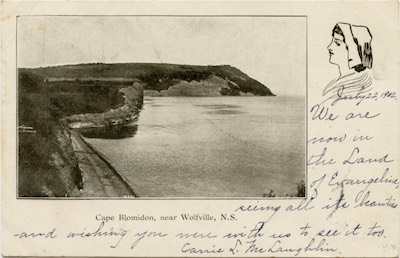 July 22, 1902.
We are
now in
the Land
of Evangeline,
Cape Blomidon, near Wolfville, N.S.
seeing all its beauties
and wishing you were with us to see it too.
Carrie L. McLaughlin.